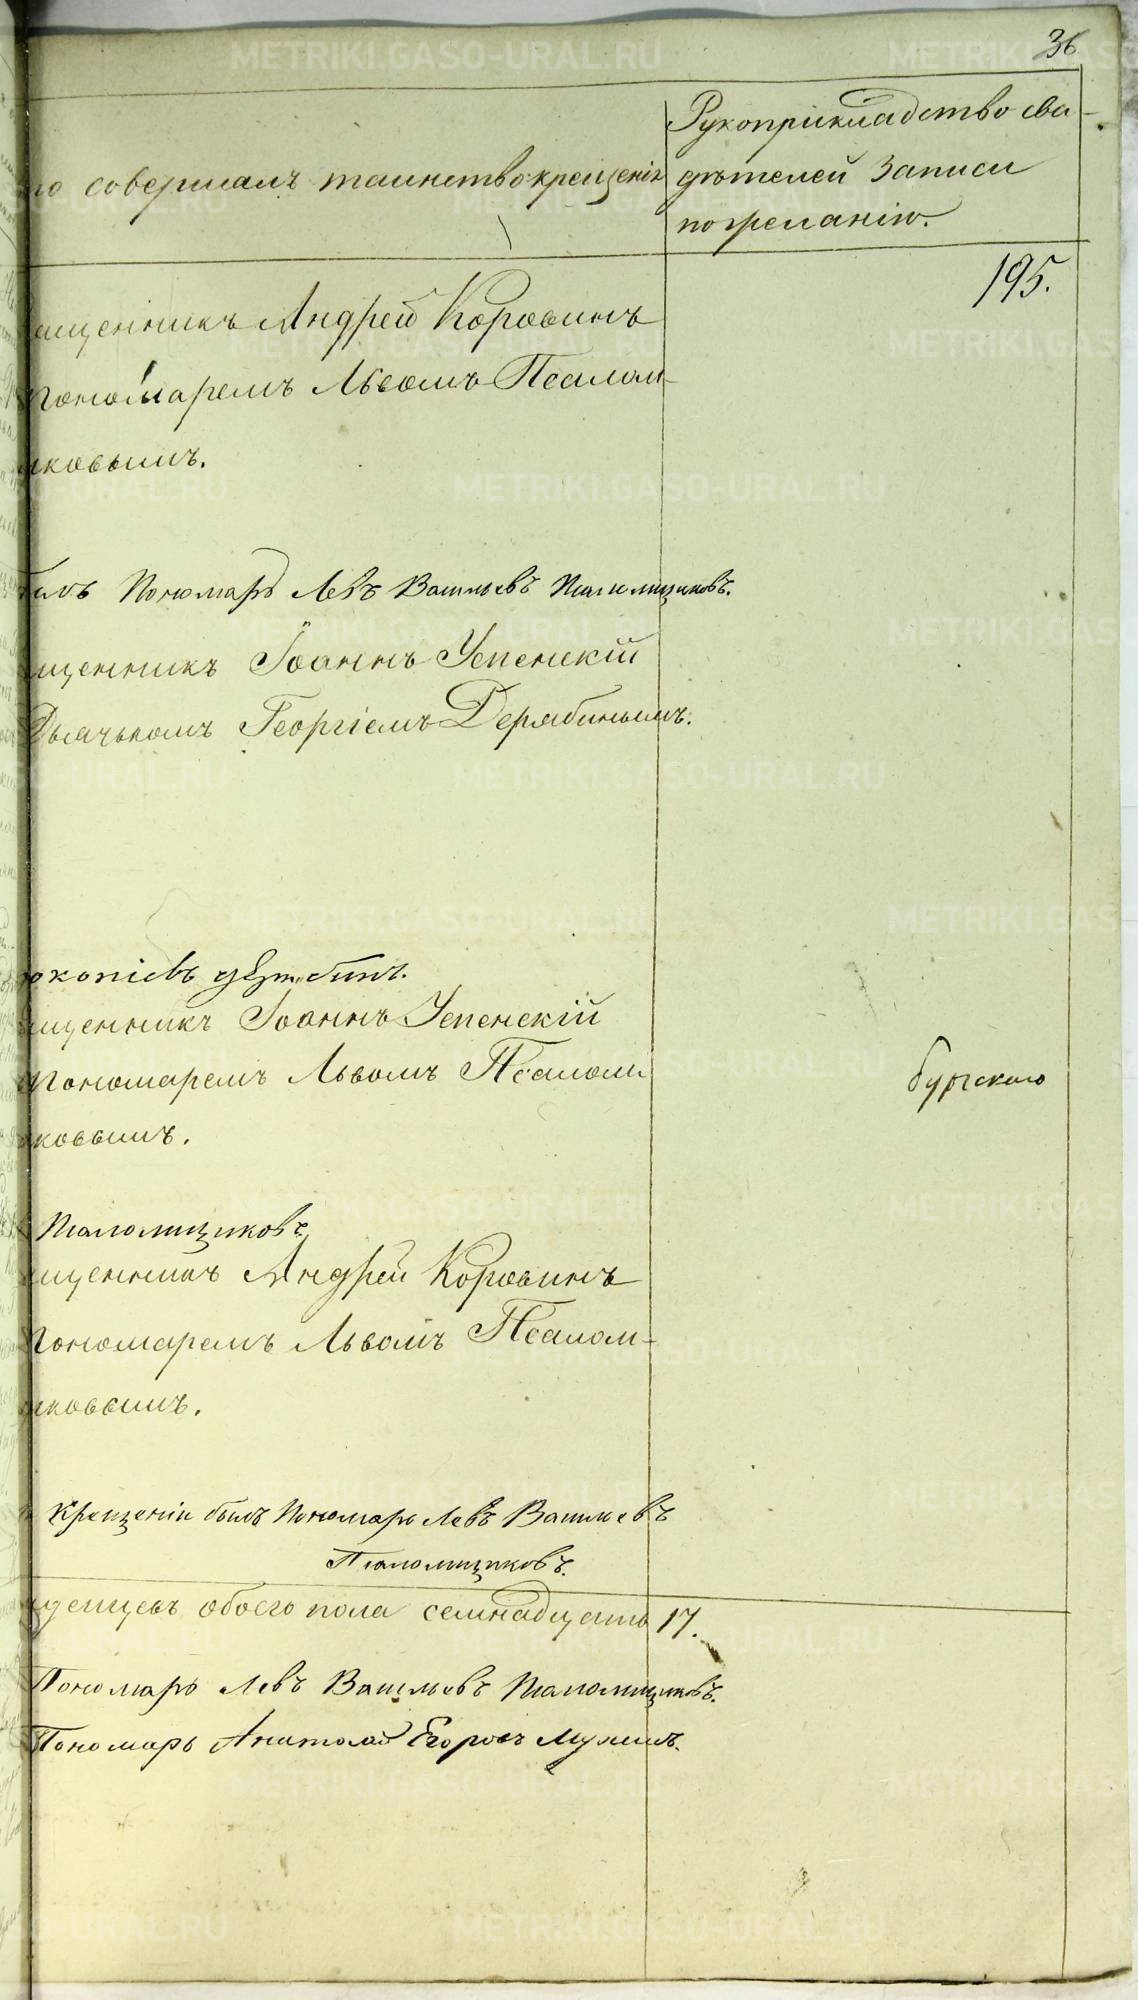 36
Рукоприкладство сви-
то совершалъ таинство крещенія
дѣтелей записи
по желанію.
195.
ященникъ Андрей Коровинъ
пономаремъ Львомъ Псалом-
иковымъ.
былъ Пономарь Левъ Васильевъ Псаломщиковъ.
ященникъ Іоаннъ Успенскій
Дьячькомъ Георгіемъ Дерябинымъ.
окопіевъ
ященникъ Іоаннъ Успенскій
пономаремъ Львомъ Псалом
бургскаго
иковымъ.
Псаломщиковъ
ященникъ Андрей Коровинъ
пономаремъ Львомъ Псалом-
иковымъ.
крещеніи былъ Пономарь Левъ Васильевъ
Псаломщиковъ.
денцевъ обоего пола семнадцать 17.
Пономарь Левъ Васильевъ Псаломщиковъ.
Пономарь Анатолій Егоровъ
METRIKI.GASO-URAL.RU